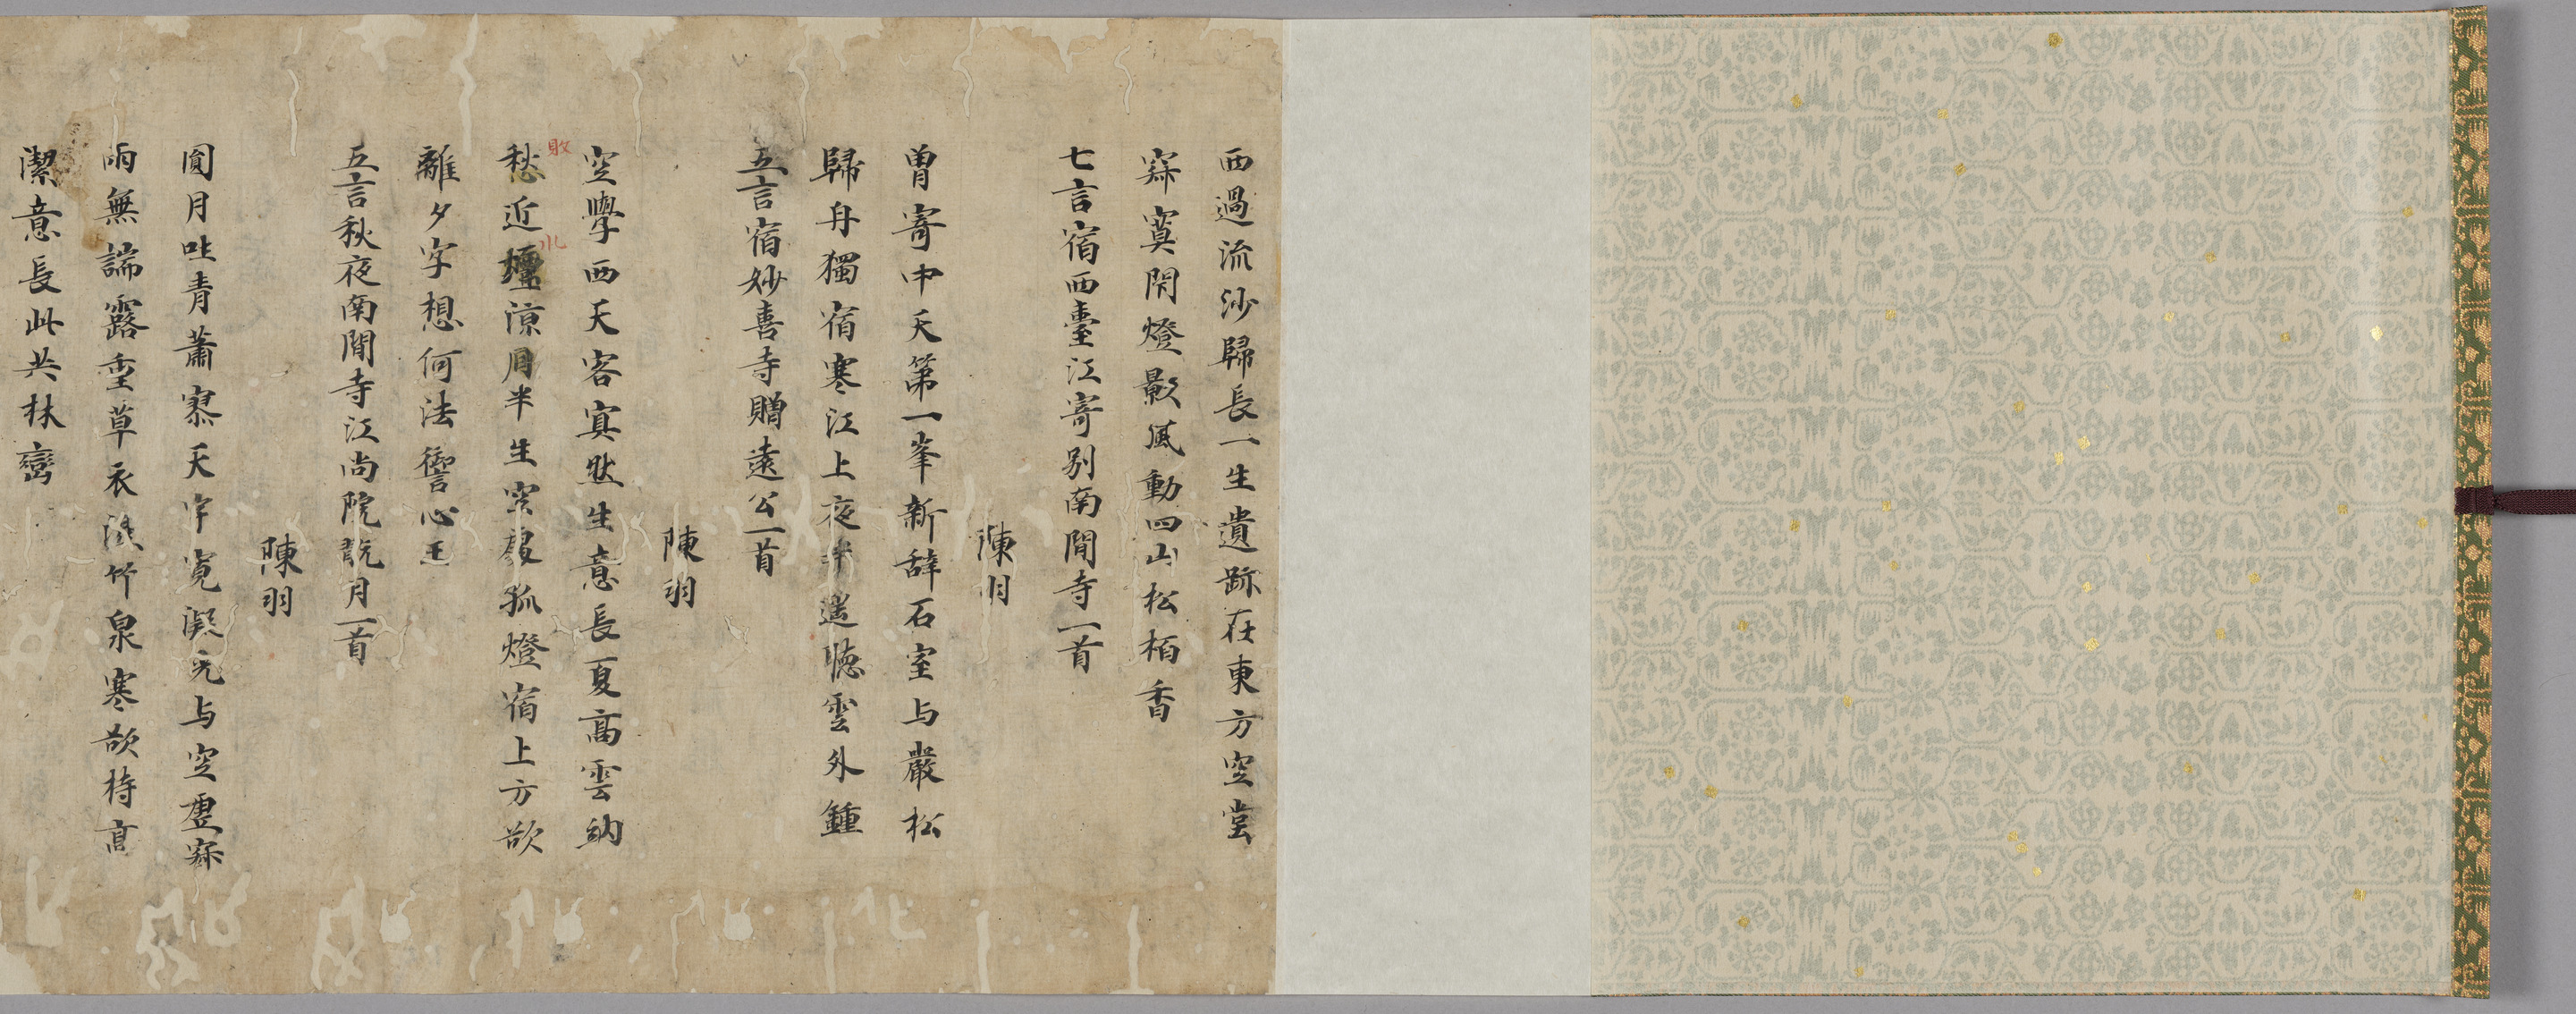 西過流沙歸長一生遺跡在東方空堂
寂寞閇燈影風動四山松栢香
七言宿西臺江寄別南閒寺一首
陳羽
曽寄中天第一峯新辞石室与嚴松
歸舟獨宿寒江上夜半遥聴雲外鍾
五言宿妙喜寺贈遠公一首
陳羽
空學西天客寘然生意長夏髙雲納
愁近壇涼月半生空孤燈宿上方欲
離夕字想何法響心王
五言秋夜南閒寺江尚院翫月一首
陳羽
圓月吐青蕭寥天宇寛澱元与空虚寂
雨無端露重草衣濕竹泉寒欲持髙
潔意長此共林巒